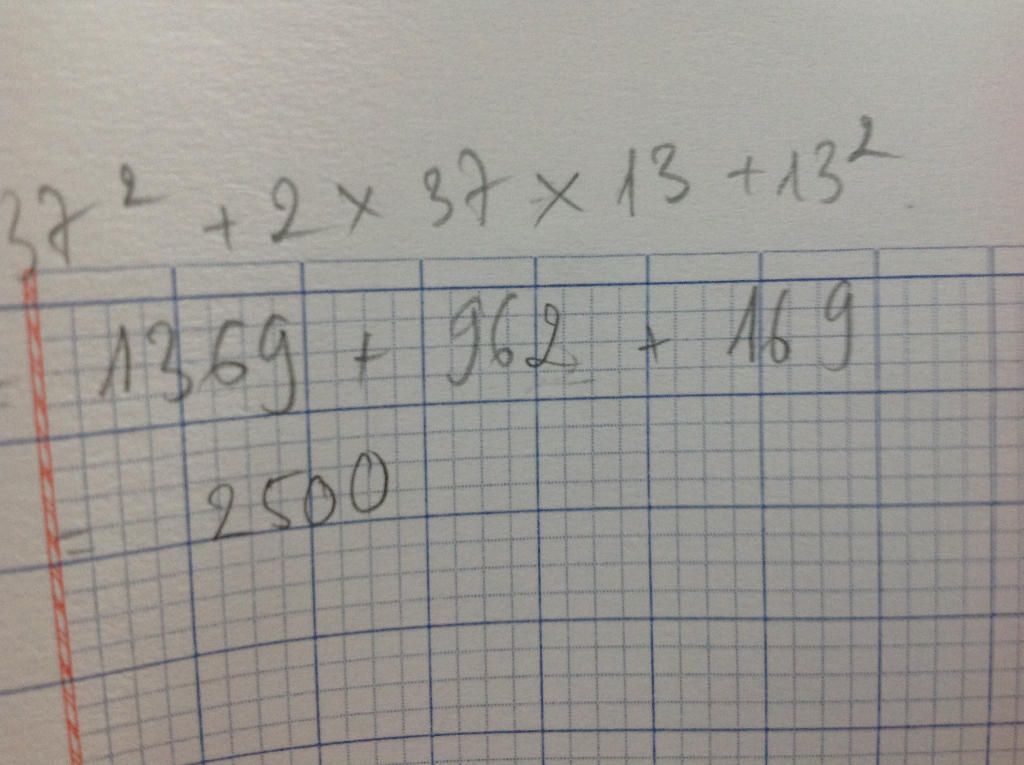 37² + 2 × 37 × 13 + 13²
= 1369 + 962 + 169
= 2500